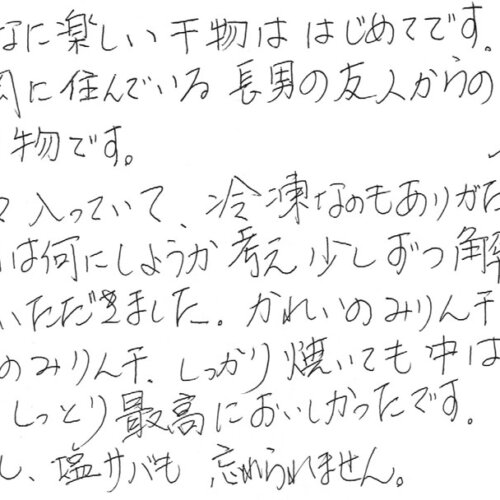 なに楽しい干物は はじめてです。
岡に住んでいる 長男の友人からの
物です。
々 入っていて、冷凍なのもありがた
は何にしようか 考え 少しずつ 解
いただきました。かれいのみりん干
のみりん干、しっかり焼いても 中は
しっとり最高においしかったです。
し、塩サバも 忘れられません。